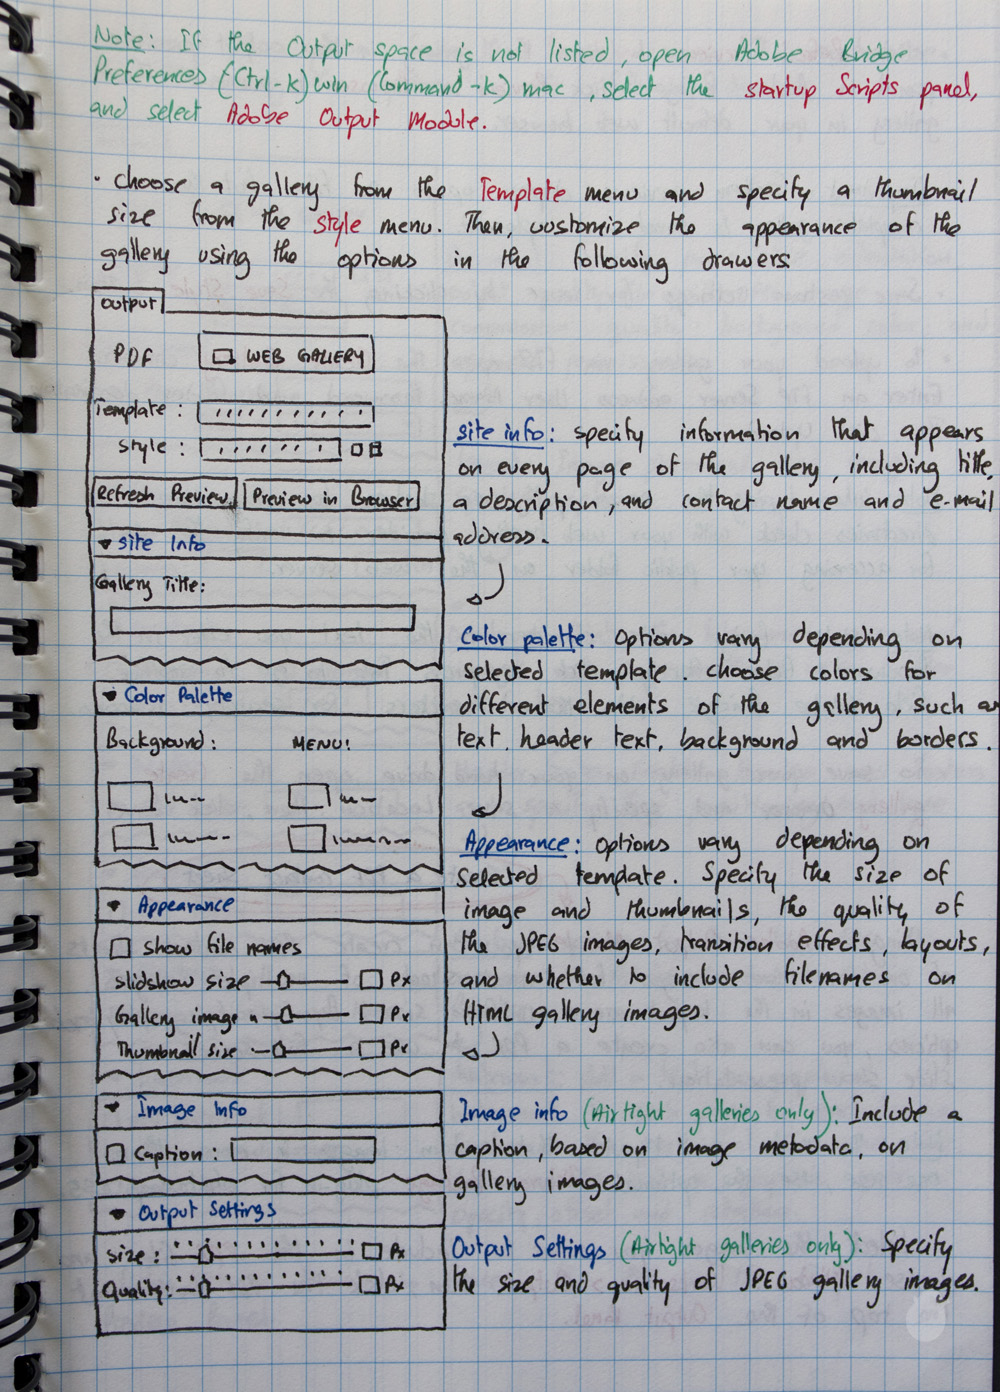 Note: If the Output space is not listed, open Adobe Bridge
Preferences (Ctrl-k) win (Command-k) mac, select the startup Scripts panel,
and select Adobe Output Module.
• Choose a gallery from the Template menu and specify a thumbnail
size from the style menu. Then, customize the appearance of the
gallery using the options in the following drawers
Output
PDF WEB GALLERY
Template:
Style:
Refresh Preview Preview in Browser
Site Info
Gallery Title:
Color Palette
Background: MENU:
Appearance
Show file names
Slidshow size Px
Gallery image Px
Thumbnail size Px
Image Info
Caption:
Output Settings
Size: Px
Quality: Px
site info: specify information that appears
on every page of the gallery, including title,
a description, and contact name and e-mail
address.
Color palette: Options vary depending on
selected template. choose colors for
different elements of the gallery, such as
text, header text, background and borders.
Appearance: Options vary depending on
selected template. Specify the size of
image and thumbnails, the quality of
the JPEG images, transition effects, layouts,
and whether to include filenames on
HTML gallery images.
Image info (Airtight galleries only): Include a
caption, based on image metadata, on
gallery images.
Output Settings (Airtight galleries only): Specify
the size and quality of JPEG gallery images.